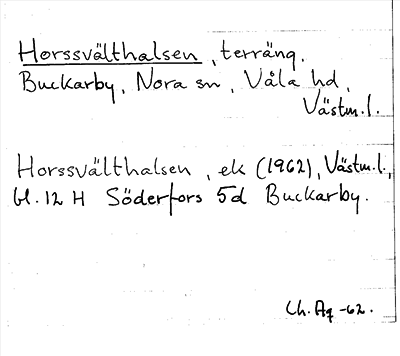 Horssvälthalsen, terräng.
Buckarby, Nora sn, Våla hd,
Västm.l.
Horssvälthalsen, ek (1962), Västm.l.,
bl. 12 H Söderfors 5d Buckarby.
Ch. Aq -62.